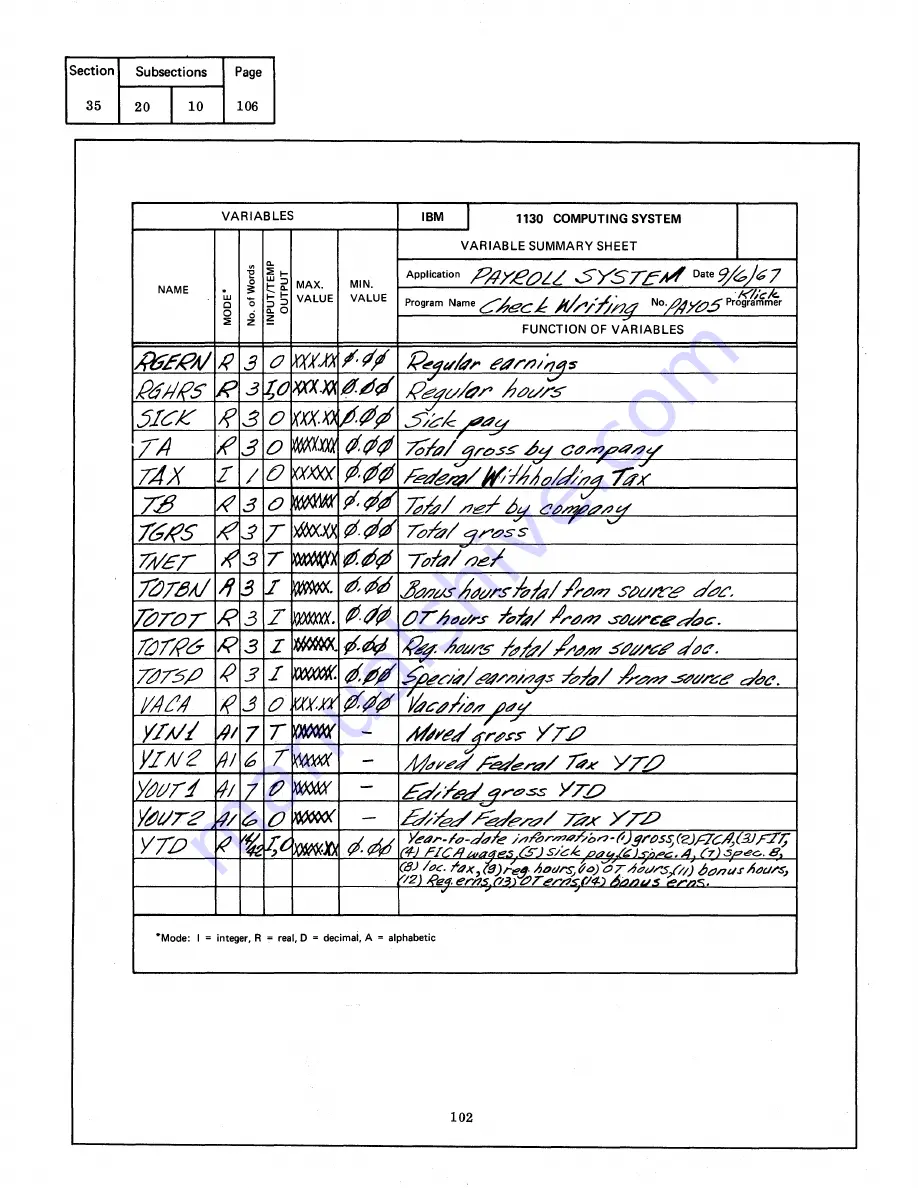 Section Subsections Page
35 20 10 106
VARIABLES IBM 1130 COMPUTING SYSTEM
VARIABLE SUMMARY SHEET
NAME MODE* No. of Words INPUT/TEMP OUTPUT MAX. VALUE MIN. VALUE
Application PAYROLL SYSTEM Date 9/6/67
Program Name Check Writing No. PAY05 Programmer Klick
FUNCTION OF VARIABLES
RGERN R 3 O XXX.XX 0.00 Regular earnings
RGHRS R 3 I,O XXX.XX 0.00 Regular hours
SICK R 3 O XXX.XX 0.00 Sick pay
TA R 3 O 0.00 Total gross by company
TAX I 1 O XXXXX 0.00 Federal Withholding Tax
TB R 3 O 0.00 Total net by company
TGRS R 3 T XXX.XX 0.00 Total gross
TNET R 3 T 0.00 Total net
TOTBN R 3 I 0.00 Bonus hours total from source doc.
TOTOT R 3 I 0.00 OT hours total from source doc.
TOTRG R 3 I 0.00 Reg. hours total from source doc.
TOTSP R 3 I 0.00 Special earnings total from source doc.
VACA R 3 O XXX.XX 0.00 Vacation pay
YIN1 A1 7 T – Moved gross YTD
YIN2 A1 6 T – Moved Federal Tax YTD
YOUT1 A1 7 O – Edited gross YTD
YOUT2 A1 6 O – Edited Federal Tax YTD
YTD R 14/42 I,O 0.00 Year-to-date information-(1) gross,(2)FICA,(3)FIT,
(4) FICA wages,(5) sick pay,(6)spec. A, (7) spec. B,
(8) loc. tax,(9)reg hours,(10) OT hours,(11) bonus hours,
(12) Reg.erns,(13)OT erns,(14) bonus erns.
*Mode: I = integer, R = real, D = decimal, A = alphabetic
102
manualshive.com